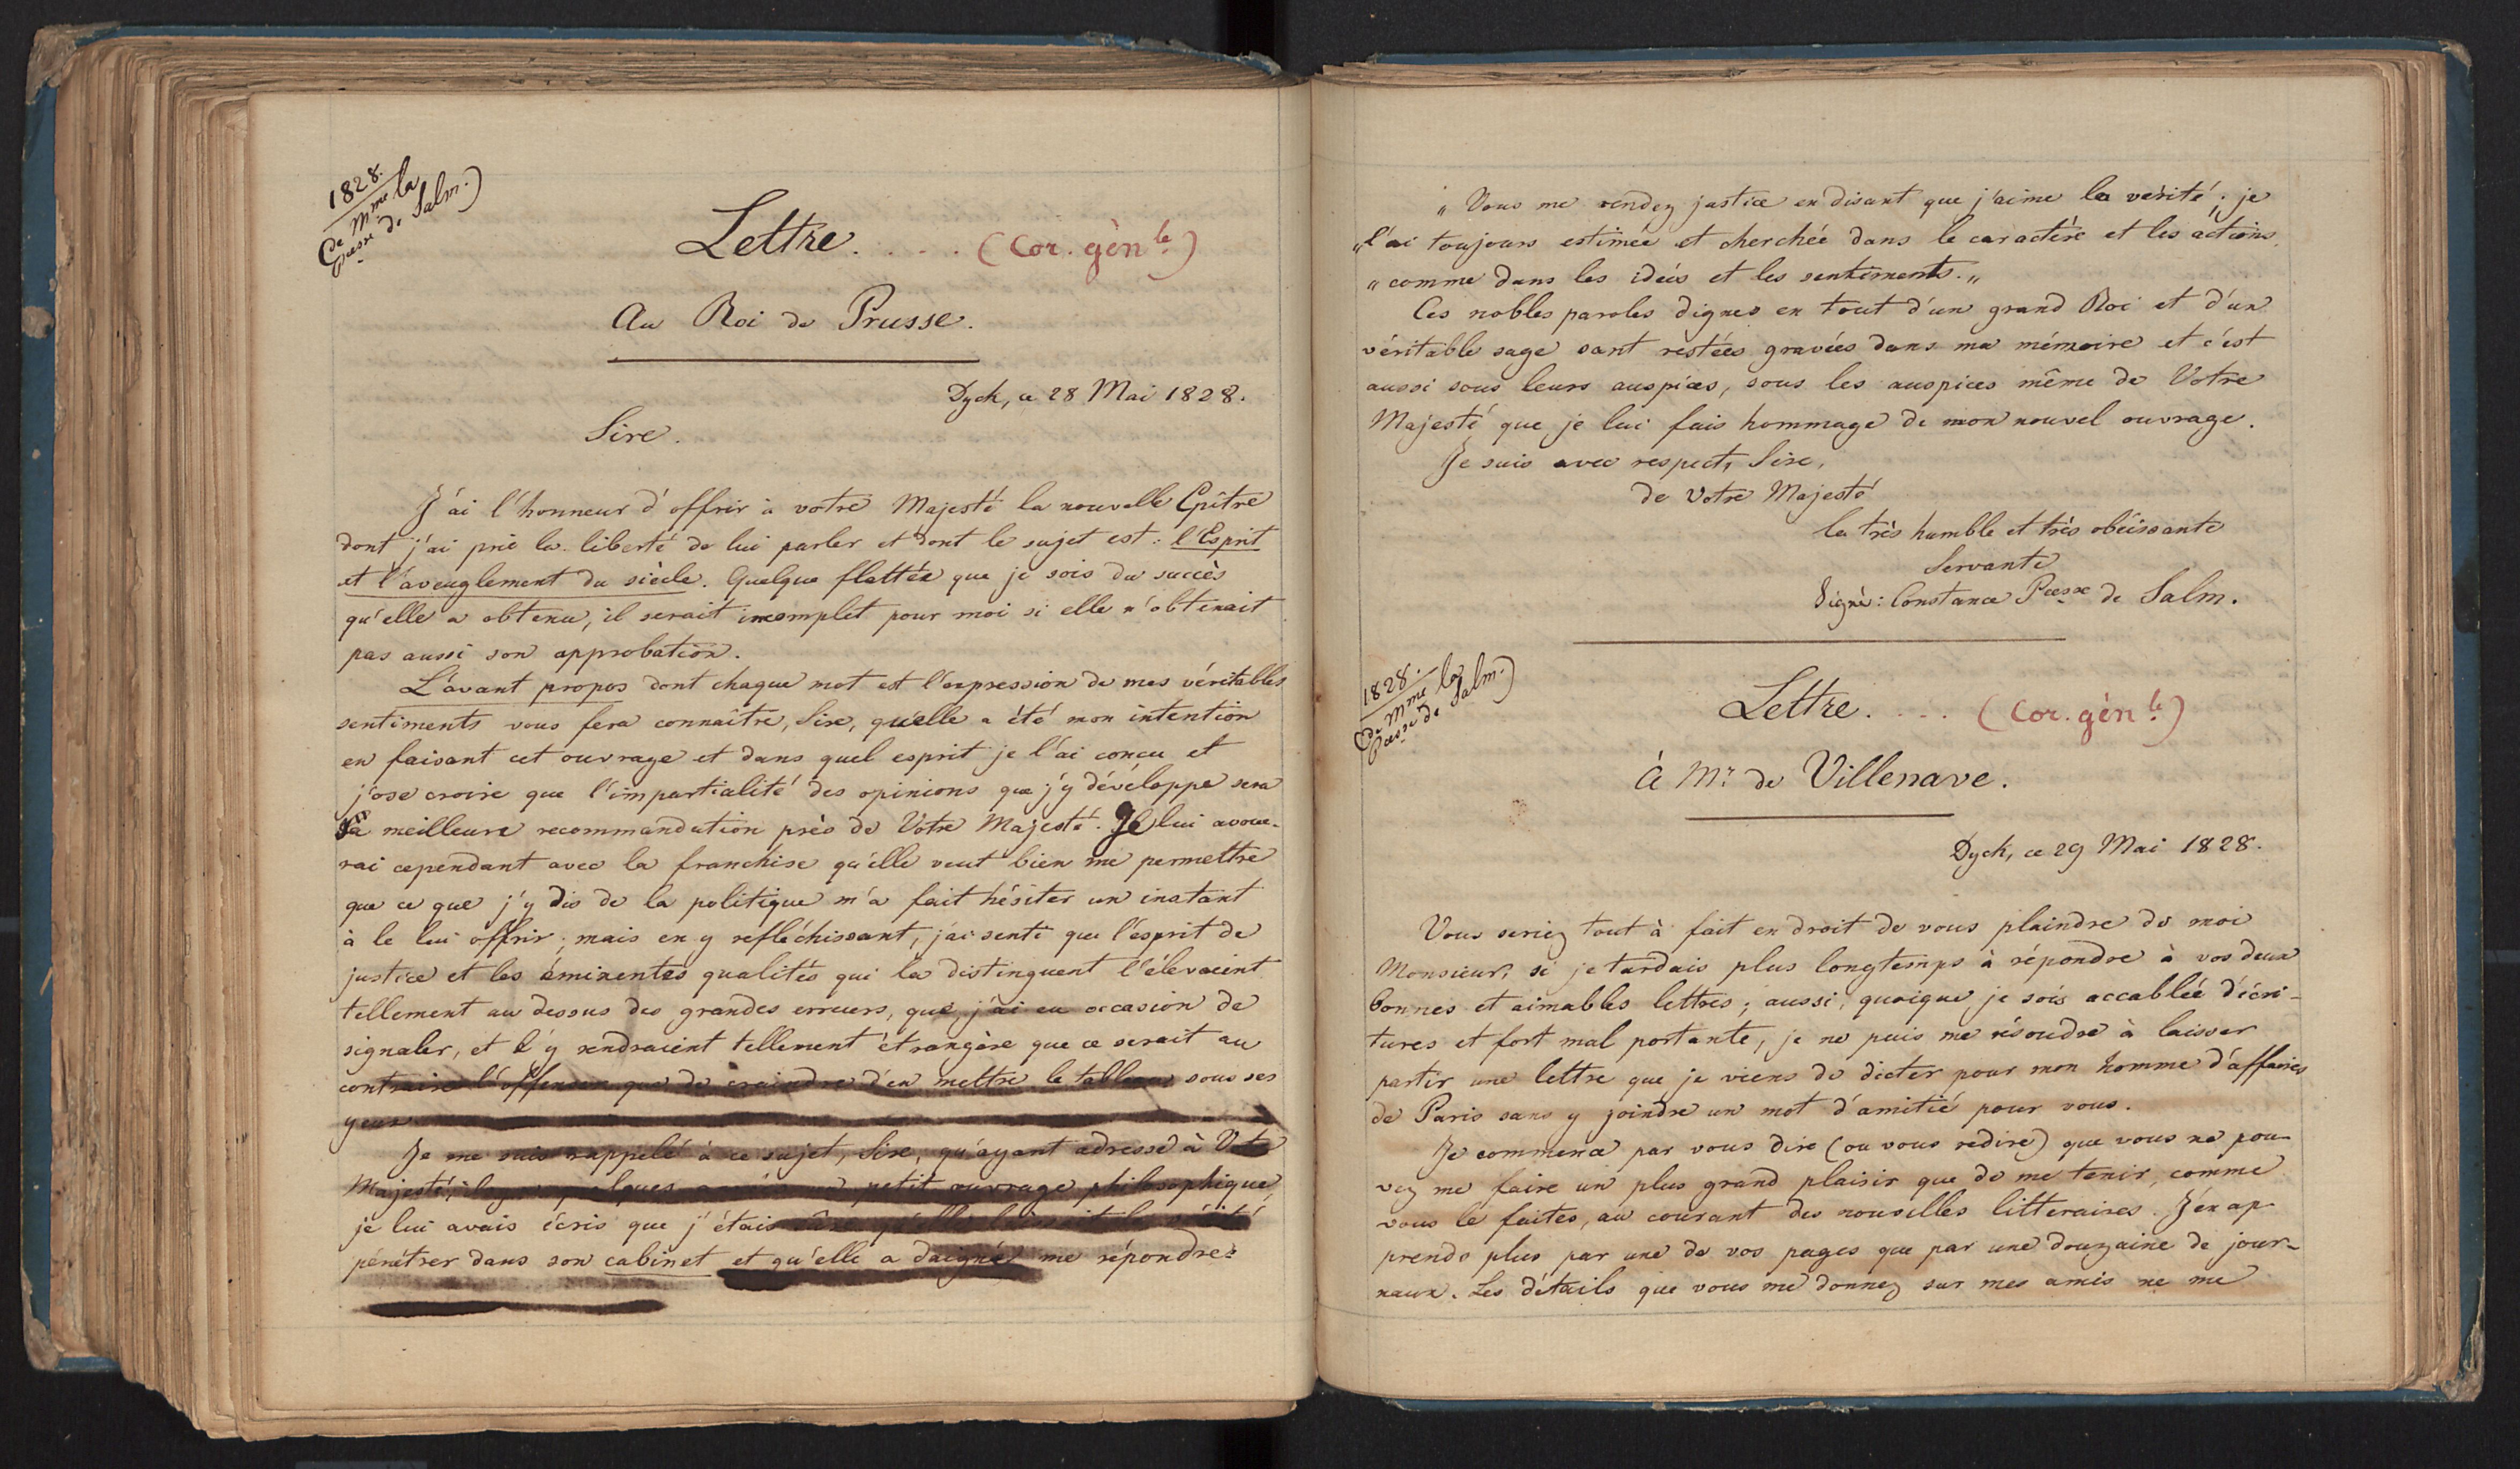 1828.
(de Mme la
Pcesse de Salm.)
Lettre. . . . . (Cor. gènle)
Au Roi de Prusse.
Dyck, ce 28 Mai 1828.
Sire.
J'ai l'honneur d'offrir à votre Majesté la nouvelle Epître
dont j'ai prié la liberté de lui parler et dont le sujet est: l'Esprit
et l'aveuglement du siècle. Quelque flattée que je sois du succès
qu'elle a obtenu, il serait incomplet pour moi si elle n'obtenait
pas aussi son approbation.
L'avant propos dont chaque mot est l'expression de mes véritables
sentiments vous fera connaître, Sire, qu'elle a été mon intention
en faisant cet ouvrage et dans quel esprit je l'ai conçu et
j'ose croire que l'impartialité des opinions que j'y développe sera
sa meilleure recommandation près de Votre Majesté. Je lui avoue-
rai cependant avec la franchise qu'elle veut bien me permettre
que ce que j'y dis de la politique m'a fait hésiter un instant
à le lui offrir; mais en y refléchissant, j'ai senti que l'esprit de
justice et les éminentes qualités qui la distinguent l'élevaient
tellement au dessus des grandes erreurs, que j'ai eu occasion de
signaler, et l'y rendraient tellement étrangère que ce serait au
contraire l'offenser que de craindre d'en mettre le tableau sous ses
yeux
Je me suis rappelé à ce sujet, Sire, qu'ayant adressé à Votre
Majesté, il y a quelques petit ouvrage philosophique,
je lui avais écris que j'étais sûre qu'elle laissait la vérité
pénétrer dans son cabinet et qu'elle a daigné me répondre:
"Vous me rendez justice en disant que j'aime la vérité; je
"l'ai toujours estimée et cherchée dans le caractère et les actions,
"comme dans les idées et les sentiments."
Ces nobles paroles dignes en tout d'un grand Roi et d'un
véritable sage sont restées gravées dans ma mémoire et c'est
aussi sous leurs auspices, sous les auspices même de Votre
Majesté que je lui fais hommage de mon nouvel ouvrage.
Je suis avec respect, Sire,
de Votre Majesté
la très humble et très obéissante
Servante
Signé: Constance Pcesse de Salm.
1828.
(de Mme la
Pcesse de Salm.)
Lettre. . . . (Cor. gènle)
À Mr de Villenave.
Dyck, ce 29 Mai 1828.
Vous seriez tout à fait en droit de vous plaindre de moi
Monsieur, si je tardais plus longtemps à répondre à vos deux
bonnes et aimables lettres; aussi, quoique je sois accablée d'écri-
tures et fort mal portante, je ne puis me résoudre à laisser
partir une lettre que je viens de dicter pour mon homme d'affaires
de Paris sans y joindre un mot d'amitié pour vous.
Je commence par vous dire (ou vous redire) que vous ne pou-
vez me faire un plus grand plaisir que de me tenir, comme
vous le faites, au courant des nouvelles litteraires. J'en ap-
prends plus par une de vos pages que par une douzaine de jour-
naux. Les détails que vous me donnez sur mes amis ne me